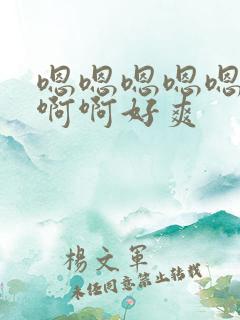 嗯嗯嗯嗯嗯
啊啊好爽
楊文軍
未任同意禁止转载